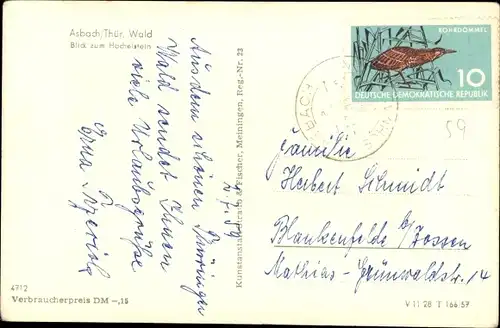 Asbach/Thür. Wald
Blick zum Hachelstein
Aus dem schönen Thüringer
Wald sendet Ihnen
viele Urlaubsgrüße
Erna
4712
Verbraucherpreis DM -,15
Meiningen, Reg.-Nr. 23
ROHRDOMMEL
10
DEUTSCHE DEMOKRATISCHE REPUBLIK
59
Familie
Herbert Schmidt
Blankenfelde b/Zossen
Mathias-Grünwaldstr. 14
V 11 28 T 166/57